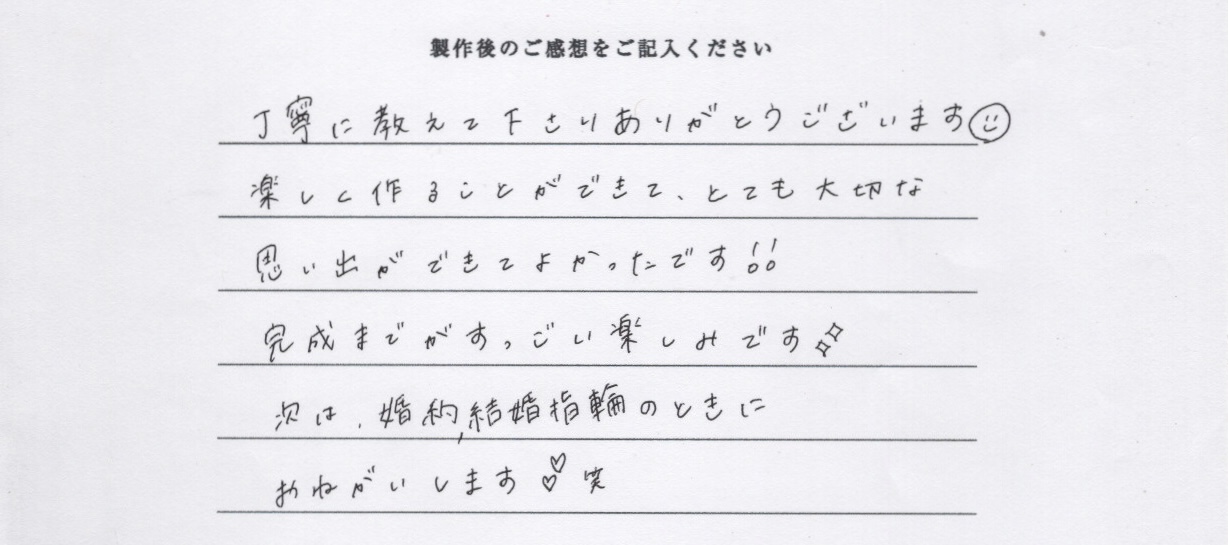 製作後のご感想をご記入ください
丁寧に教えて下さりありがとうございます☺
楽しく作ることができて、とても大切な
思い出ができてよかったです!!
完成までがすっごい楽しみです✨
次は、婚約,結婚指輪のときに
おねがいします💕笑